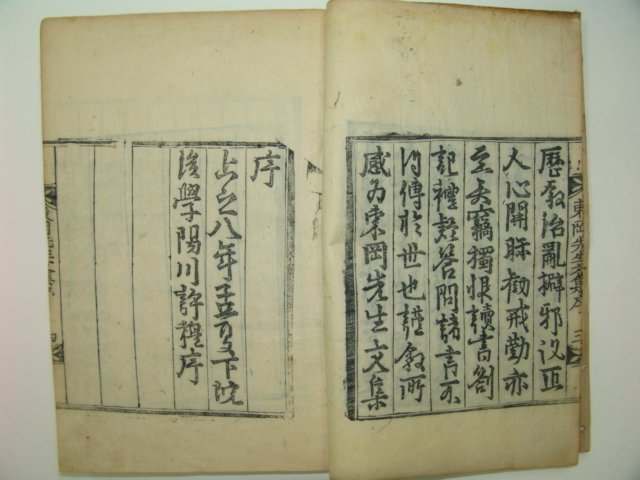 東岡先生文集序 三
歷敍治亂邪說正
人心開眎勸戒勤亦
至矣竊獨恨讀書劄
記禮疑答問諸書不
得傳於世也謹敍所
感爲東岡先生文集
序
上之八年孟夏下浣
後學陽川許穆序
四